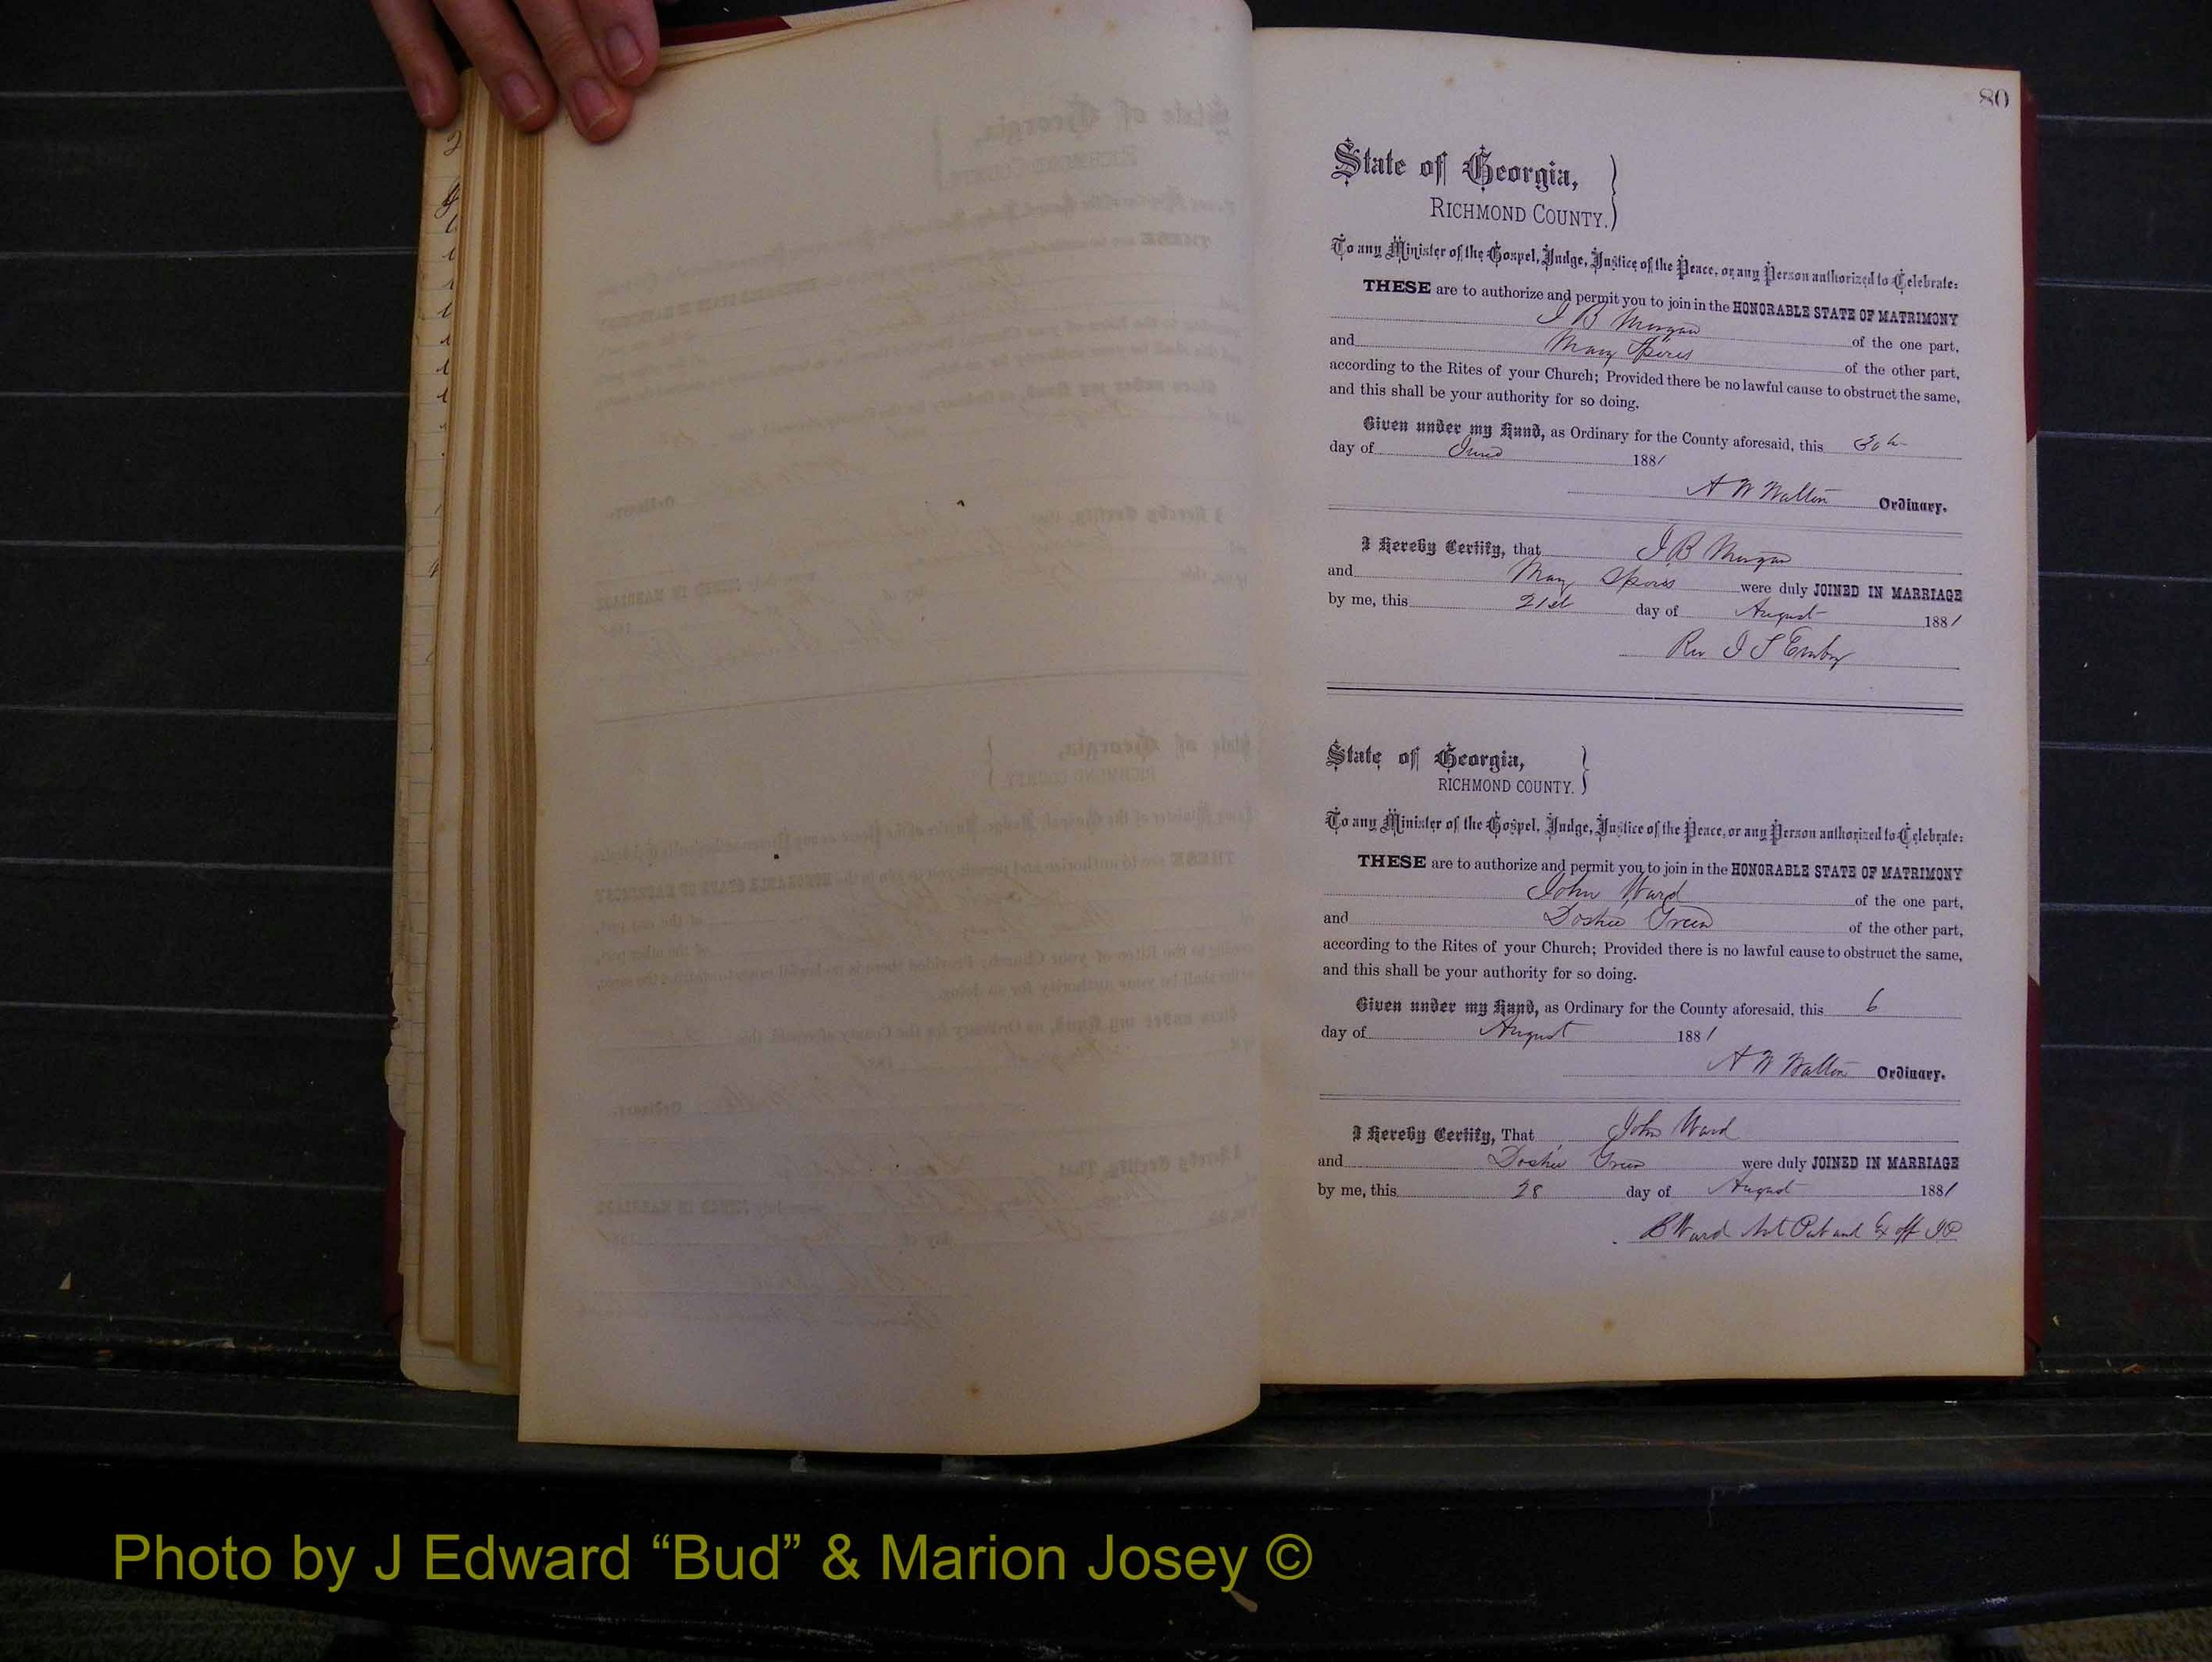 80
State of Georgia,
RICHMOND COUNTY.
To any Minister of the Gospel, Judge, Justice of the Peace, or any Person authorized to Celebrate:
THESE are to authorize and permit you to join in the HONORABLE STATE OF MATRIMONY
J B Morgan of the one part,
and Mary Spires of the other part,
according to the Rites of your Church; Provided there be no lawful cause to obstruct the same,
and this shall be your authority for so doing.
Given under my Hand, as Ordinary for the County aforesaid, this 30th
day of June 1881
A W Walton Ordinary.
I Hereby Certify, that J B Morgan
and Mary Spires were duly JOINED IN MARRIAGE
by me, this 21st day of August 1881
Rev J S
State of Georgia,
RICHMOND COUNTY.
To any Minister of the Gospel, Judge, Justice of the Peace, or any Person authorized to Celebrate:
THESE are to authorize and permit you to join in the HONORABLE STATE OF MATRIMONY
John Ward of the one part,
and Doshie Green of the other part,
according to the Rites of your Church; Provided there is no lawful cause to obstruct the same,
and this shall be your authority for so doing.
Given under my Hand, as Ordinary for the County aforesaid, this 6
day of August 1881
A W Walton Ordinary.
I Hereby Certify, That John Ward
and Doshie Green were duly JOINED IN MARRIAGE
by me, this 28 day of August 1881
B Ward Not Pub and Ex off JP
Photo by J Edward “Bud” & Marion Josey ©